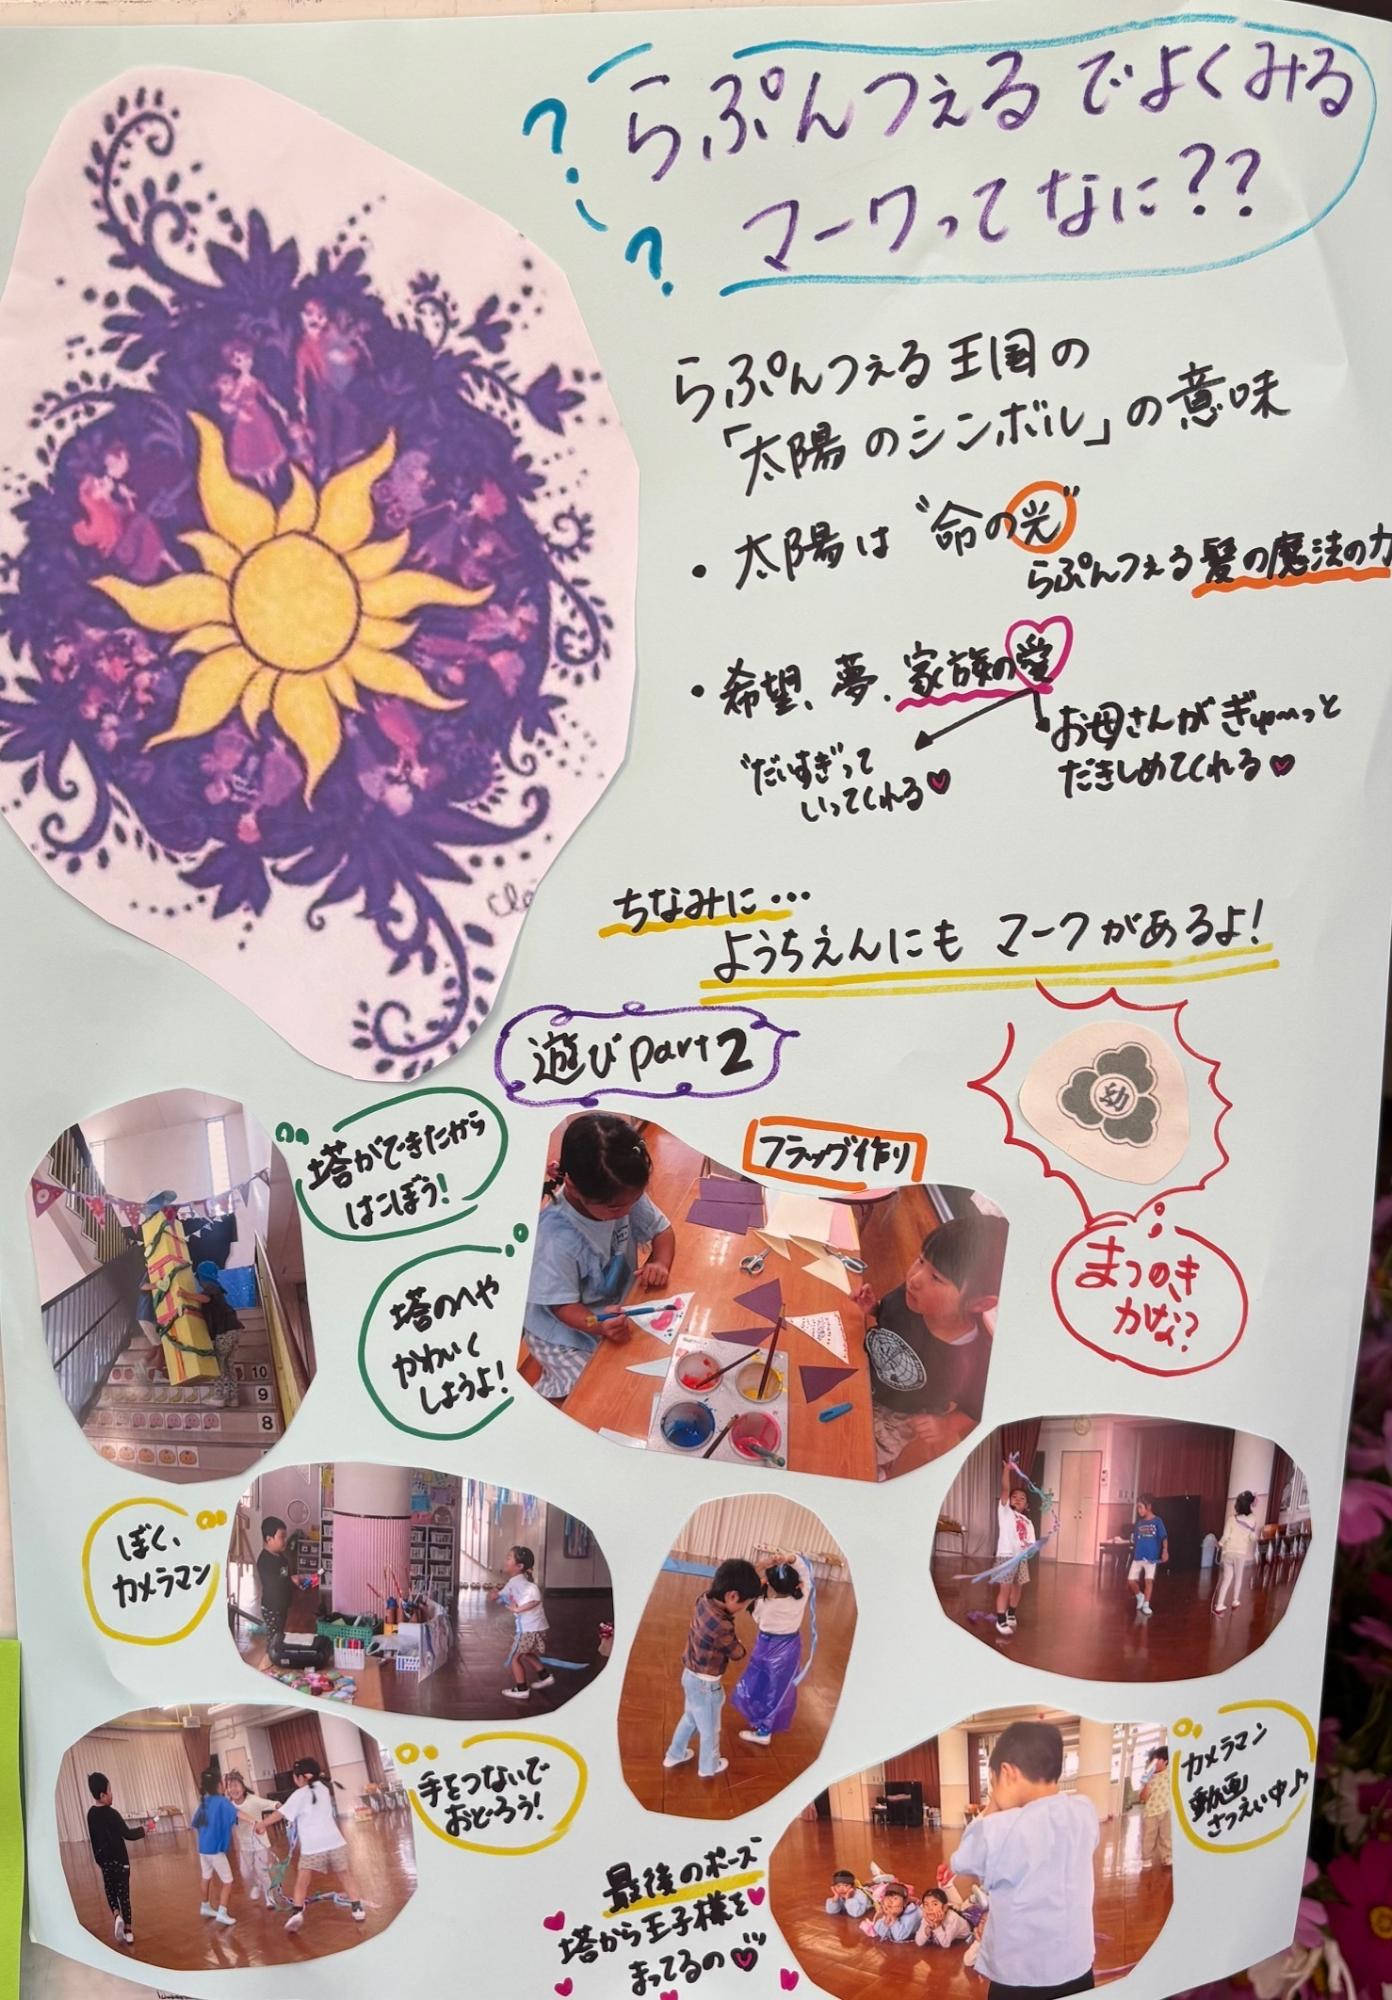 らぷんつぇるでよくみる
マークってなに??
? ?
らぷんつぇる王国の
「太陽のシンボル」の意味
・太陽は“命の光”
らぷんつぇる髪の魔法の力
・希望、夢、家族の愛
“だいすきって
いってくれる
お母さんがぎゅ〜っと
だきしめてくれる
ちなみに…
ようちえんにも マークがあるよ!
幼
まつのき
かな?
遊びpart2
塔ができたから
はこぼう!
フラッグ作り
塔のへや
かわいく
しようよ!
10
9
8
ぼく、
カメラマン
手をつないで
おどろう!
カメラマン
動画
さつえい中♪
最後のポーズ
塔から王子様を
まってるの